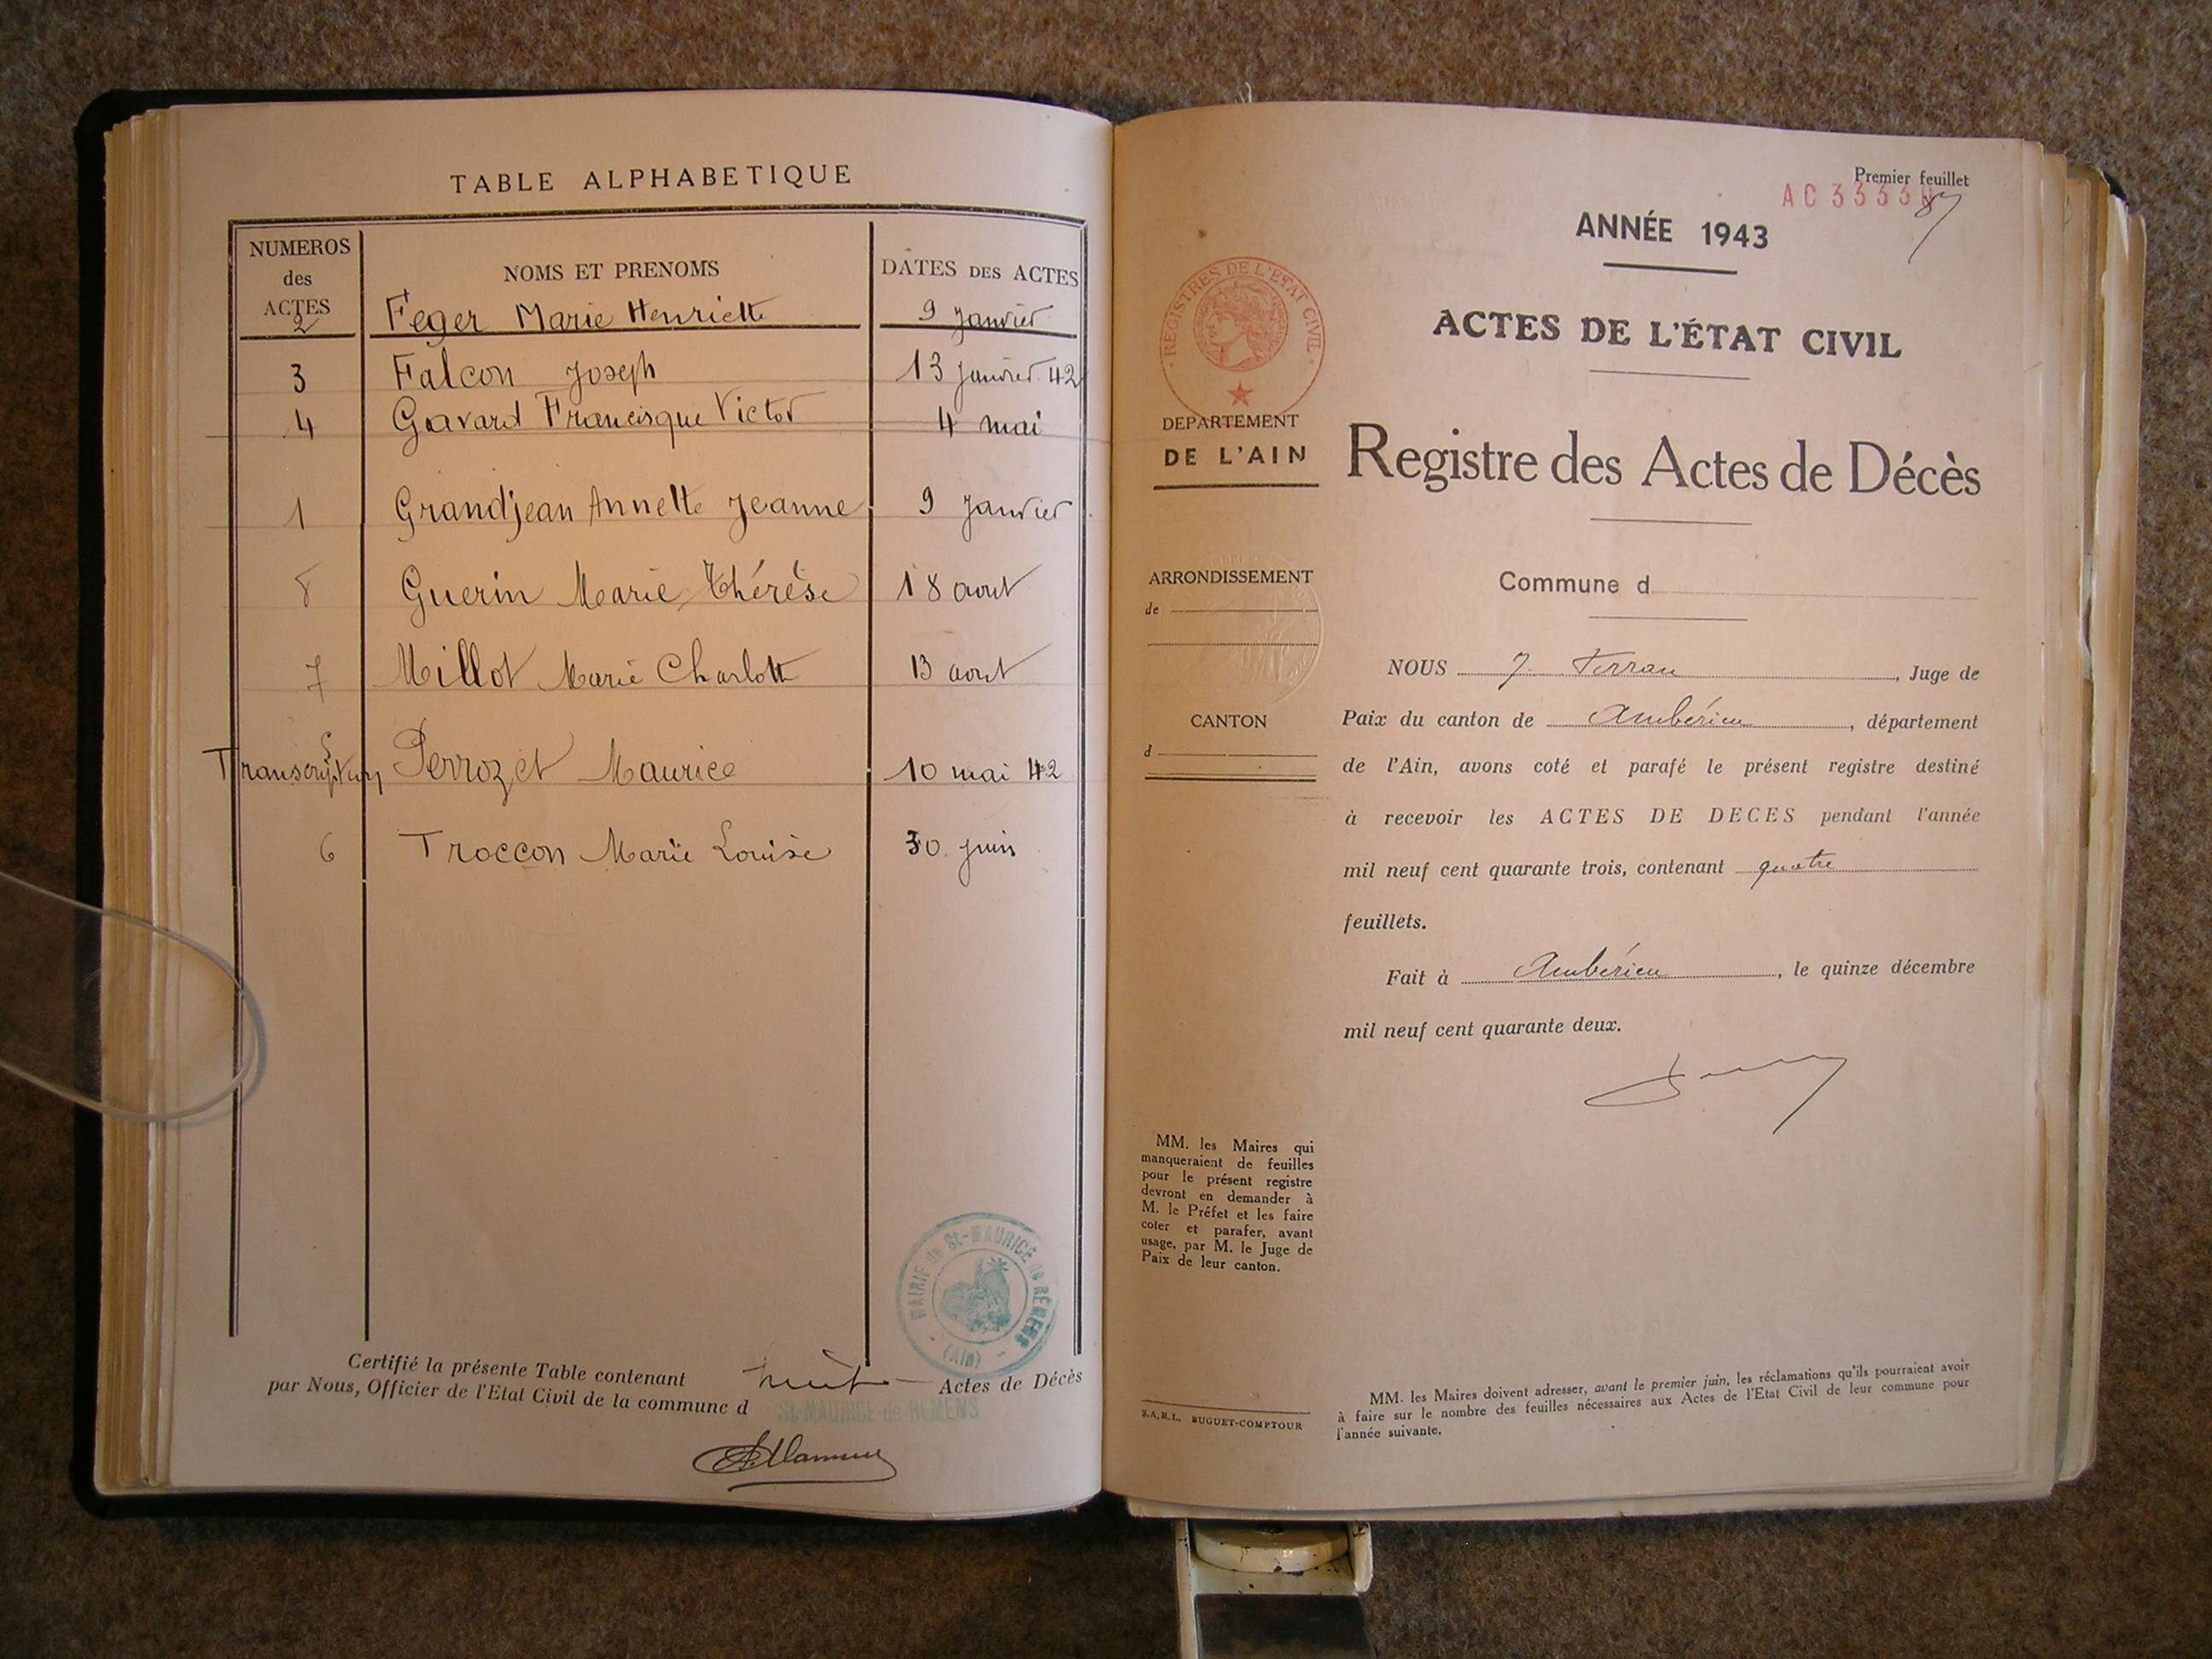 TABLE ALPHABETIQUE
NUMEROS des ACTES
NOMS ET PRENOMS
DATES DES ACTES
2 Feger Marie Henriette 9 Janvier
3 Falcon Joseph 13 Janvier 42
4 Gavard Francisque Victor 4 mai
1 Grandjean Annette Jeanne 9 Janvier
8 Guerin Marie Thérèse 18 aout
7 Millot Marie Charlotte 13 aout
Transcription Perrozet Maurice 10 mai 42
6 Troccon Marie Louise 30 juin
MAIRIE de St-MAURICE de RÉMENS (Ain)
Certifié la présente Table contenant huit Actes de Décès
par Nous, Officier de l'Etat Civil de la commune d St-MAURICE de REMENS
Premier feuillet
AC 3333
ANNÉE 1943
ACTES DE L'ÉTAT CIVIL
REGISTRES DE L'ÉTAT CIVIL
DEPARTEMENT
DE L'AIN
Registre des Actes de Décès
ARRONDISSEMENT
de
Commune d
CANTON
d
NOUS J. Ferran, Juge de
Paix du canton de Ambérieu, département
de l'Ain, avons coté et parafé le présent registre destiné
à recevoir les ACTES DE DECES pendant l'année
mil neuf cent quarante trois, contenant quatre
feuillets.
Fait à Ambérieu, le quinze décembre
mil neuf cent quarante deux.
MM. les Maires qui
manqueraient de feuilles
pour le présent registre
devront en demander à
M. le Préfet et les faire
coter et parafer, avant
usage, par M. le Juge de
Paix de leur canton.
S.A.R.L. BUGUET-COMPTOUR
MM. les Maires doivent adresser, avant le premier juin, les réclamations qu'ils pourraient avoir
à faire sur le nombre des feuilles nécessaires aux Actes de l'Etat Civil de leur commune pour
l'année suivante.